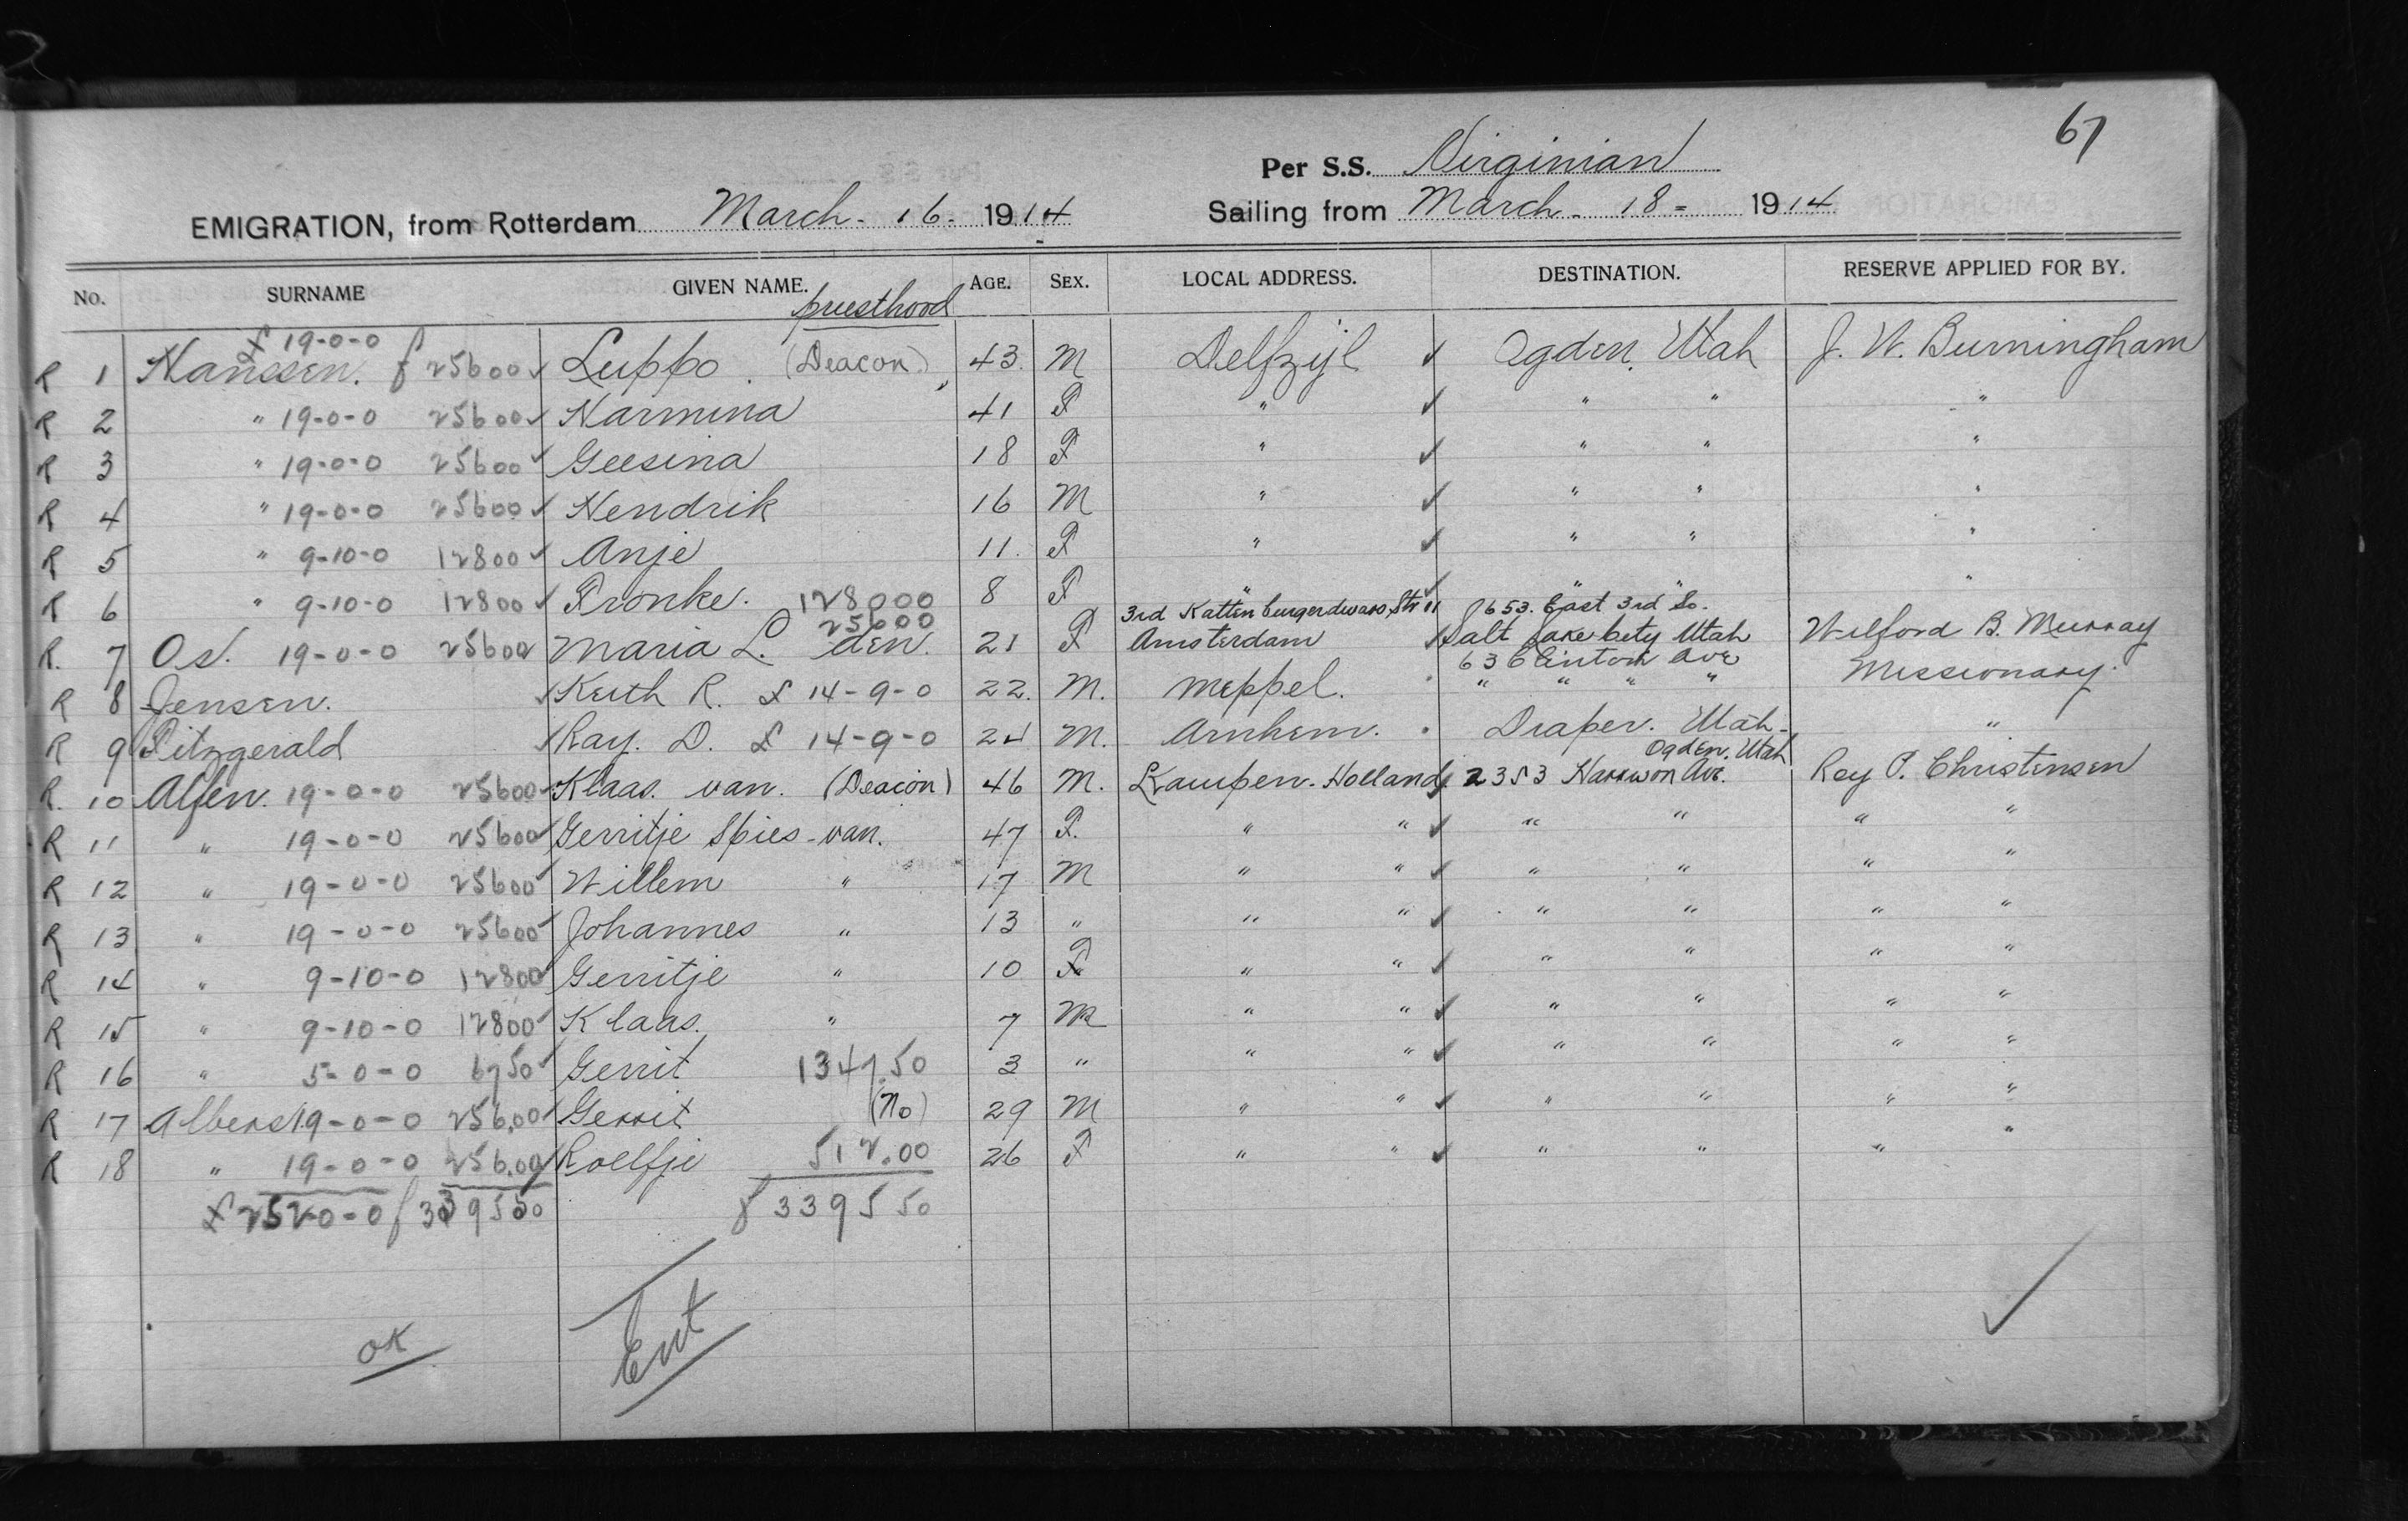 67
Per S.S. Virginian
EMIGRATION, from Rotterdam March - 16 - 1914 Sailing from March - 18 - 1914
No. SURNAME GIVEN NAME. priesthood AGE. SEX. LOCAL ADDRESS. DESTINATION. RESERVE APPLIED FOR BY.
£ 19-0-0
R 1 Hanssen. f 25600 ✓ Luppo. (Deacon) 43 M Delfzijl ✓ Ogden, Utah J. W. Burningham
R 2 " 19-0-0 25600 ✓ Harmina 41 F " ✓ " " "
R 3 " 19-0-0 25600 ✓ Geesina 18 F " ✓ " " "
R 4 " 19-0-0 25600 ✓ Hendrik 16 M " ✓ " " "
R 5 " 9-10-0 12800 ✓ Anje 11. F " ✓ " " "
R 6 " 9-10-0 12800 ✓ Fronke. 128000 8 F " ✓ " " "
25600 3rd Str 11 653. East 3rd So.
R. 7 Os. 19-0-0 25600 Maria L. den. 21 F Amsterdam ✓ Salt Lake City Utah Wilford B. Murray
636 Clinton Ave
R 8 Jensen. ✓ Keith R. £ 14-9-0 22. M. Meppel. " " " " Missionary.
R 9 Fitzgerald ✓ Ray. D. £ 14-9-0 24 M. Arnhem. Draper. Utah- "
Ogden, Utah
R. 10 Alfen. 19-0-0 25600 ✓ Klaas. van. (Deacon) 46 M. Kampen-Holland ✓ 2353 Ave. Roy P. Christensen
R 11 " 19-0-0 25600 ✓ Gerritje Spies-van. 47 F. " " ✓ " " " "
R 12 " 19-0-0 25600 ✓ Willem " 17 M " " ✓ " " " "
R 13 " 19-0-0 25600 ✓ Johannes " 13 " " " ✓ " " " "
R 14 " 9-10-0 12800 ✓ Gerritje " 10 F " " ✓ " " " "
R 15 " 9-10-0 12800 ✓ Klaas. " 7 M " " ✓ " " " "
R 16 " 5-0-0 6750 ✓ Gerrit 1347.50 3 " " " ✓ " " " "
R 17 Albers 19-0-0 256.00 ✓ Gerrit (no) 29 M " " ✓ " " " "
R 18 " 19-0-0 256.00 ✓ Roelfje 512.00 26 F " " ✓ " " " "
£ 252-0-0 f 339550 f 339550
OK
Ent
✓